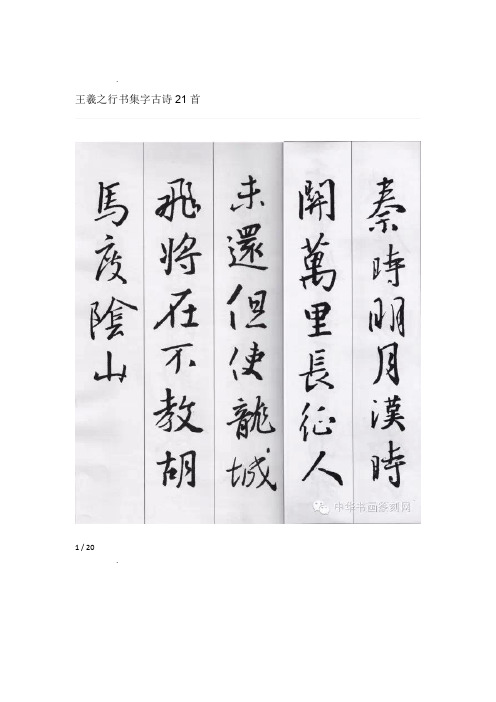 王羲之行书集字古诗21首
秦時明月漢時
關萬里長征人
未還但使龍城
飛將在不教胡
馬度陰山
中华书画篆刻网
1 / 20